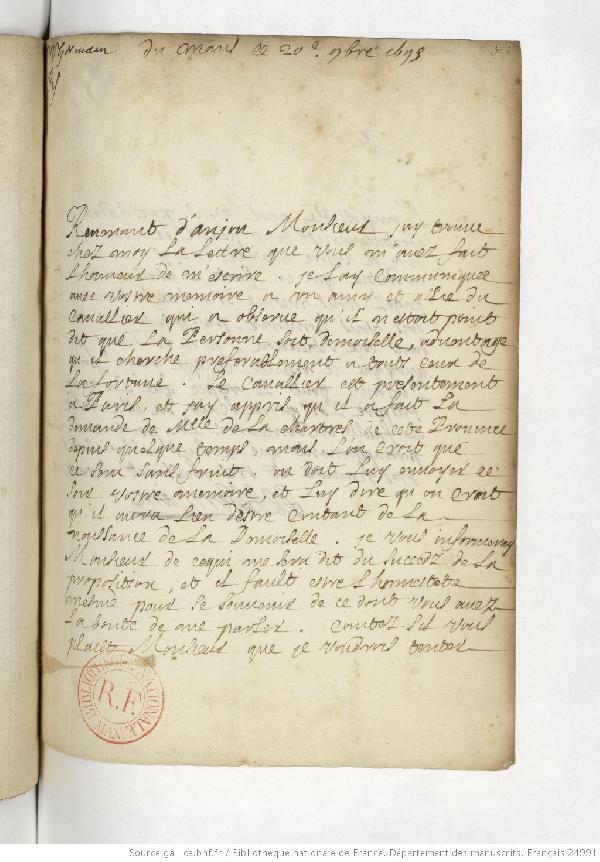 du mans ce 20e. 9bre 1695
Revenant d'anjou Monsieur jay trouvé
chez moy La Lettre que vous m'avez fait
Lhonneur de m'escrire. je Lay Communiquee
avec vostre memoire a un amy et alié du
Cavallier qui a observé qu'il n'estoit point
dit que La Personne soit demoiselle, advantage
qu'il cherche preferablement a touts ceux de
La fortune. Le Cavallier est presentement
a Paris, et jay appris qu'il a fait La
demande de Melle de La Chartres de cete Province
depuis quelque temps, mais Lon Croit que
ce sera sans fruit. on doit Luy envoyer ce
soir vostre memoire, et Luy dire qu'on Croit
qu'il aura Lieu destre Contant de La
naissance de La Demoiselle. je vous informeray
Monsieur de cequi me sera dit du succez de La
proposition, et il fault estre Lhonnestete
mesme pour se souvenir de ce dont vous avez
La bonté de me parler. Contez sil vous
plaist Monsieur que je voudrois tenter
BIBLIOTHEQUE NATIONALE MAN.
R.F.
Source gallica.bnf.fr / Bibliothèque nationale de France. Département des manuscrits. Français 24991